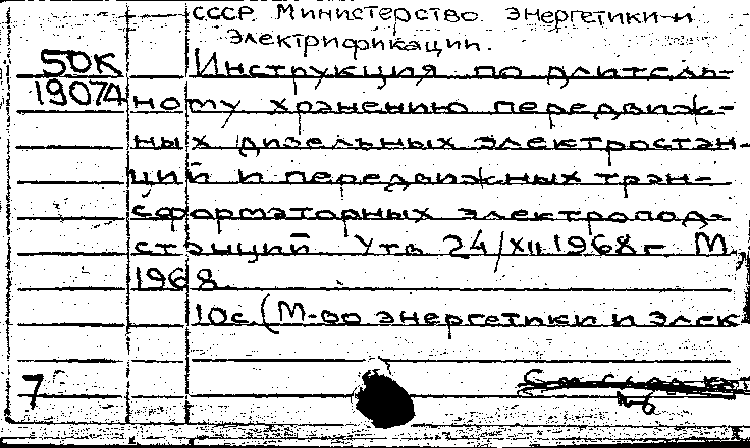 СССР. Министерство энергетики и
электрификации.
50К Инструкция по длитель-
19074 ному хранению передвиж-
ных дизельных электростан-
ций и передвижных тран-
сформаторных электропод-
станций Утв 24/XII 1968г М,
1968
10с (М-во энергетики и элек
7